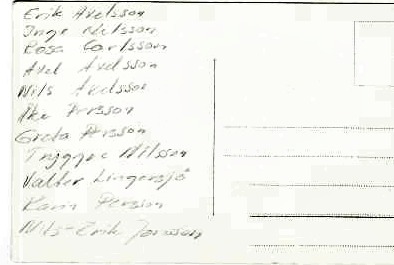 Erik Axelsson
Inge Nilsson
Rosa Carlsson
Axel Axelsson
Nils Axelsson
Åke Persson
Greta Persson
Tryggve Nilsson
Valter Lingersjö
Karin Persson
Nils-Erik Jonsson